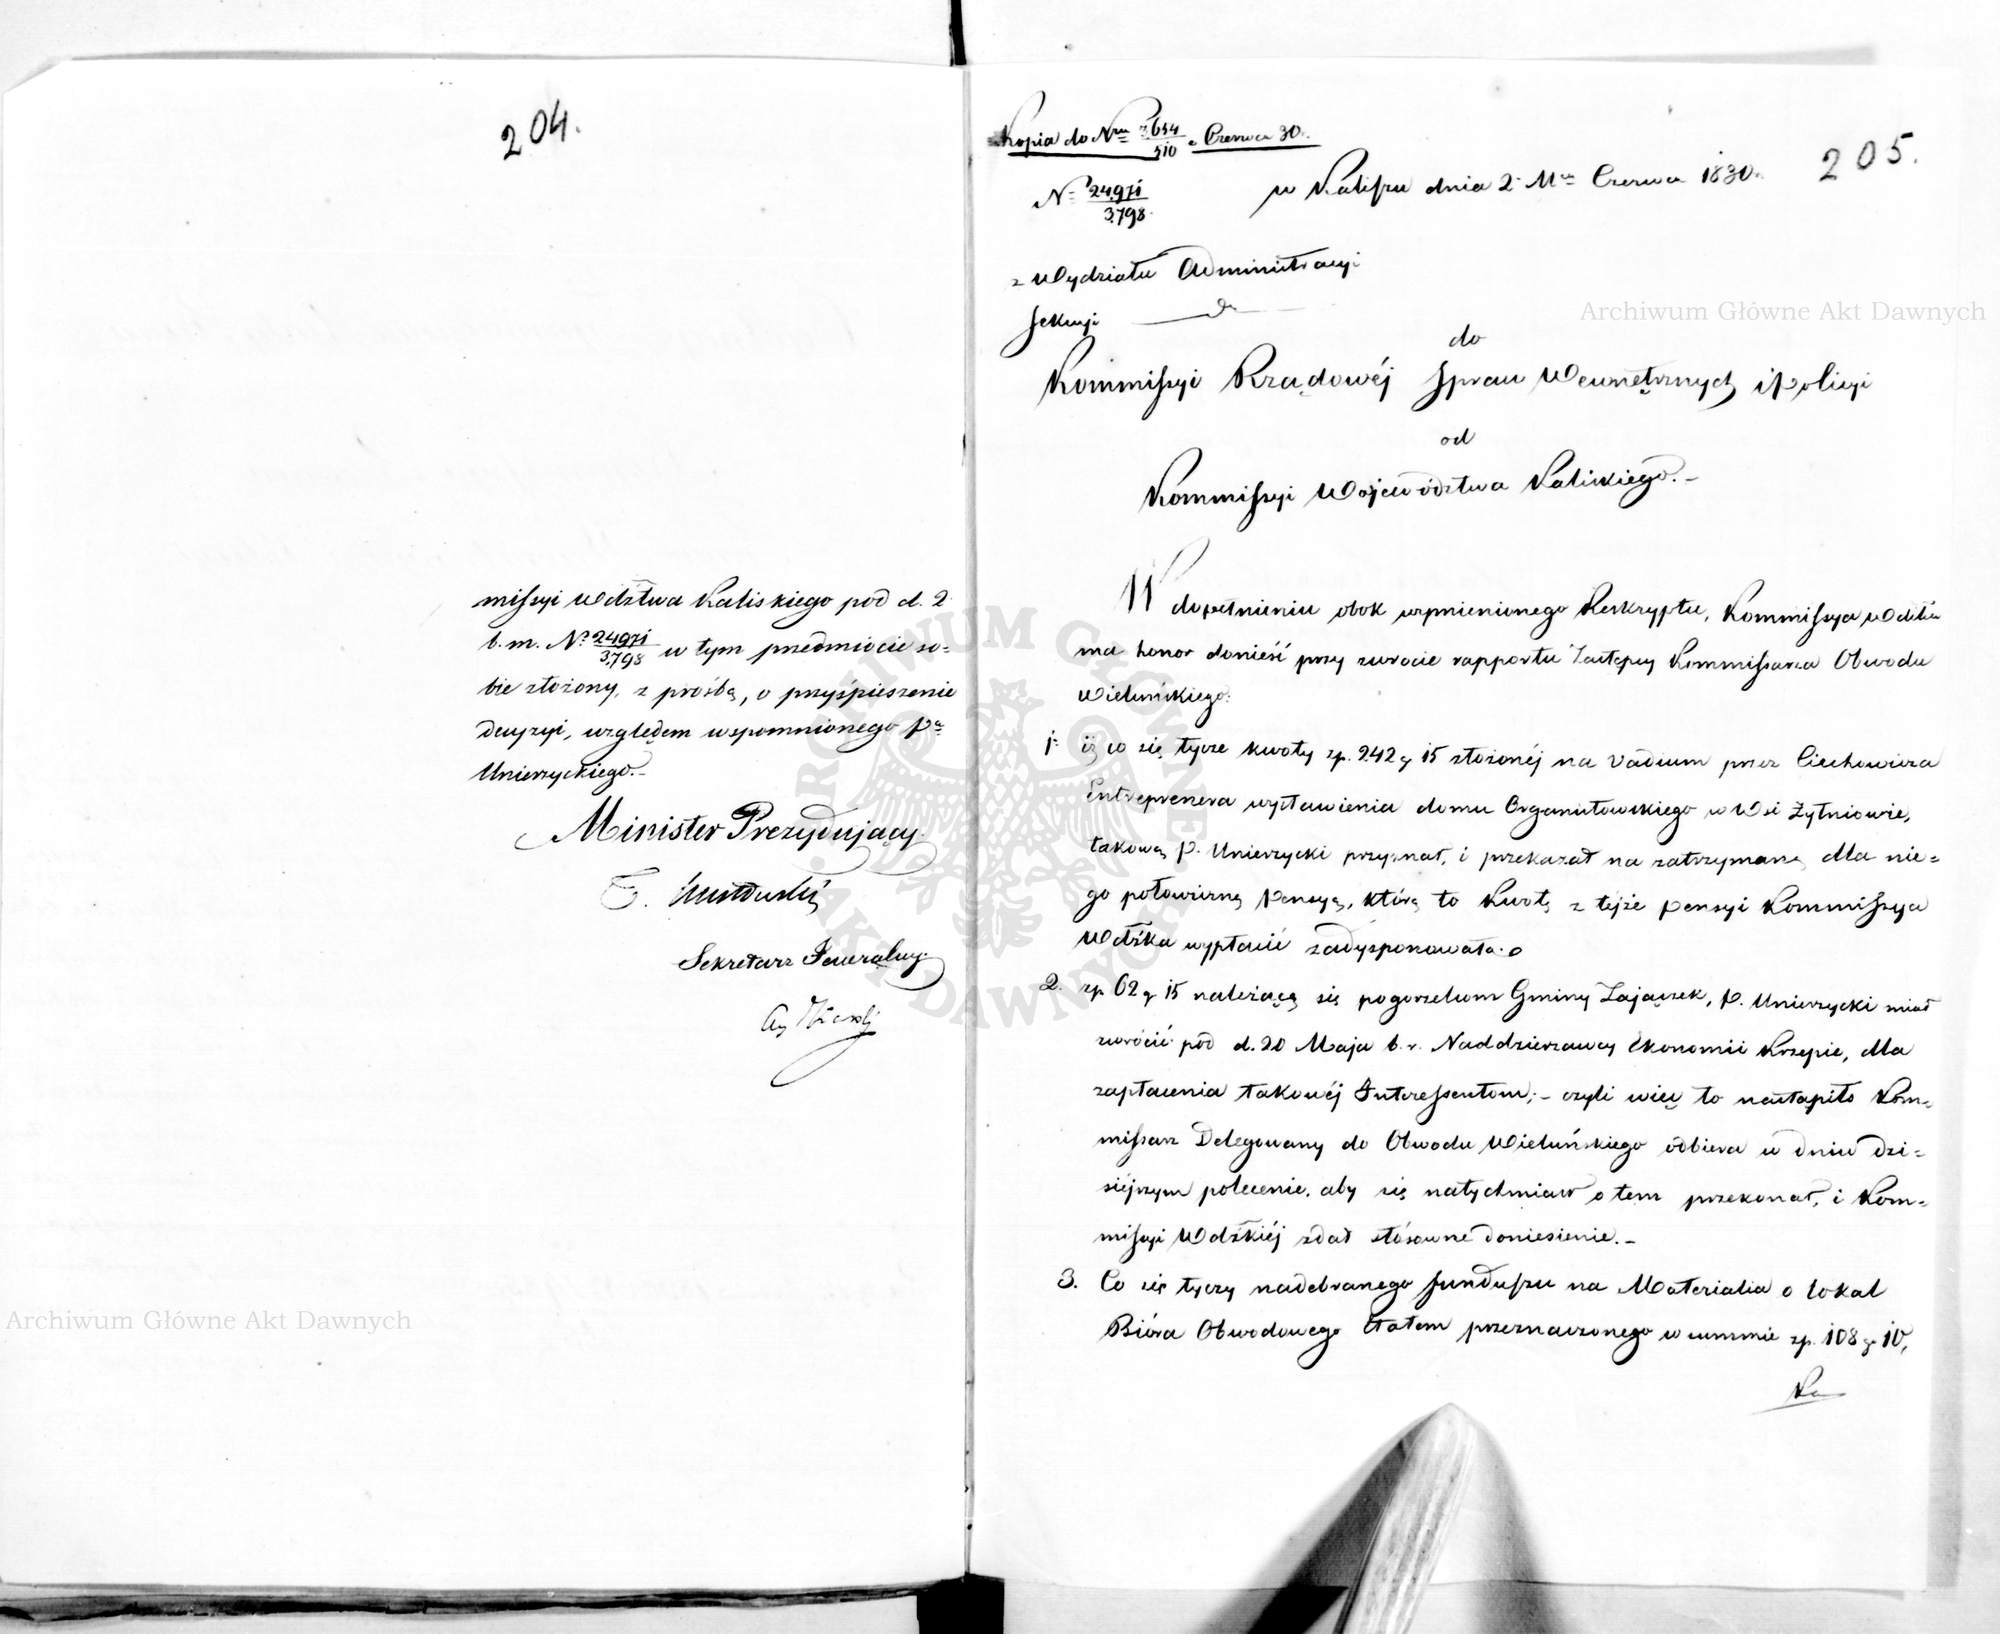 204.
missyi Wdztwa Kaliskiego pod d. 2
b. m. Nº 24971/3798 w tym przedmiocie so=
bie złożony, z prośbą, o przyśpieszenie
decyzyi, względem wspomnionego Pª
Unierzyckiego.–
Minister Prezydujący
T. Mostowski
Sekretarz Jeneralny
205.
Kopia do Nru 7654/510 a Czerwca 30.
w Kaliszu dnia 2 Mca Czerwca 1830.
Nº 24971/3798.
z Wydziału Administracyi
Sekcyi
do
Kommissyi Rządowéj Spraw Wewnętrznych i Policyi
od
Kommissyi Województwa Kaliskiego.–
W dopełnieniu obok wzmienionego Reskryptu, Kommissya Wdztwa
ma honor donieść przy zwrocie rapportu Zastępcy Kommissarza Obwodu
Wieluńskiego:
1º iż co się tycze kwoty zp. 242 g 15 złożonéj na vadium przez Ciechowicza
Entreprenera wystawienia domu Organistowskiego w Wsi Żytniowie,
takową P. Unierzycki przyznał, i przekazał na zatrzymaną dla nie=
go połowiczną pensyą, którą to kwotę z tejże pensyi Kommissya
Wdzka wypłacić zadysponowała.
2. zp 62 g 15 należącą się pogorzelcom Gminy Zajączek, P. Unierzycki miał
zwrócić pod d. 20 Maja b. r. Naddzierzawcy Ekonomii Krzepie, dla
zapłacenia takowéj Interessentom;– czyli więc to nastąpiło Kom=
missarz Delegowany do Obwodu Wieluńskiego odbiera w dniu dzi=
siéjszym polecenie, aby się natychmiast o tem przekonał, i Kom=
missyi Wdzkiéj zdał stósowne doniesienie.–
3. Co się tyczy nadebranego funduszu na Materialia o lokal
Bióra Obwodowego Etatem przeznaczonego w summie zp. 108 g 10,
Ka
Archiwum Główne Akt Dawnych
Archiwum Główne Akt Dawnych
ARCHIWUM GŁÓWNE AKT DAWNYCH